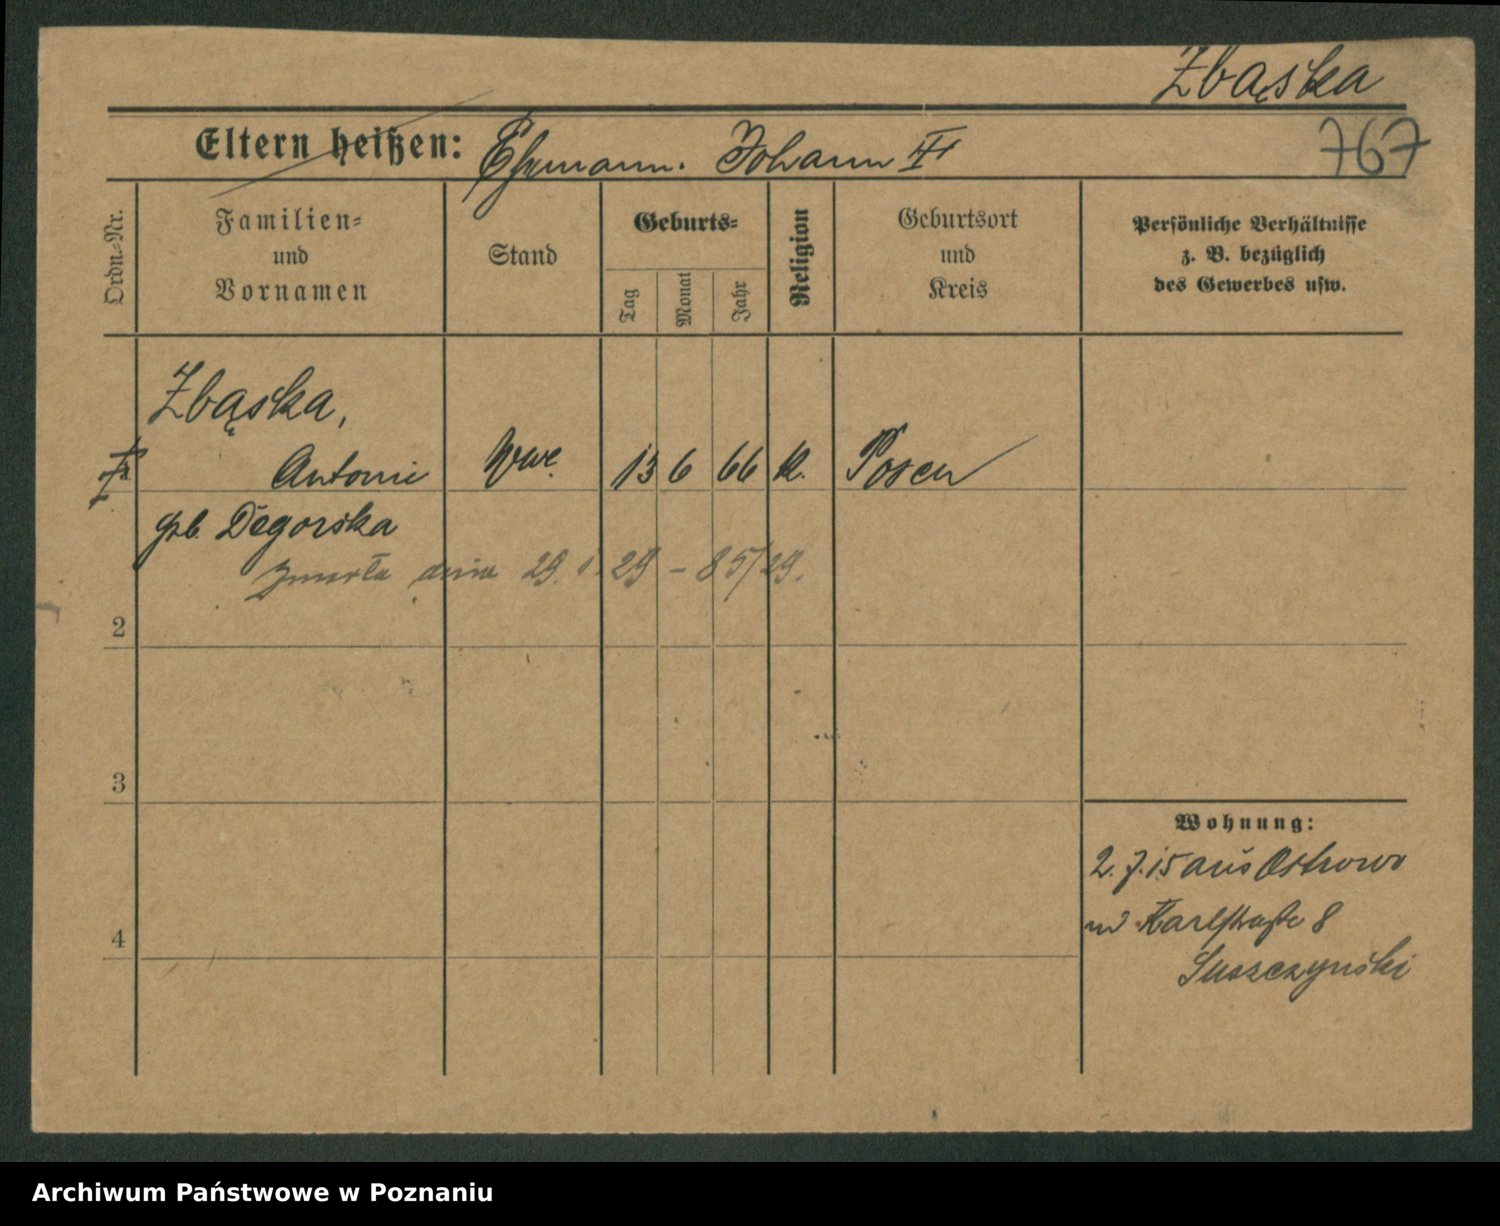 Zbąska
767
Eltern heißen: Ehemann. Johann
Ordn.-Nr.
Familien- und Vornamen
Stand
Geburts-
Tag
Monat
Jahr
Religion
Geburtsort und Kreis
Persönliche Verhältnisse z. B. bezüglich des Gewerbes usw.
Zbąska,
Antonie Wwe. 13 6 66 k. Posen
geb. Degorska
zmarła dnia 29. 1. 29 – 85/29.
2
3
4
Wohnung:
2. 7. 15 aus Ostrowo
Karlstraße 8
Suszczynski
Archiwum Państwowe w Poznaniu